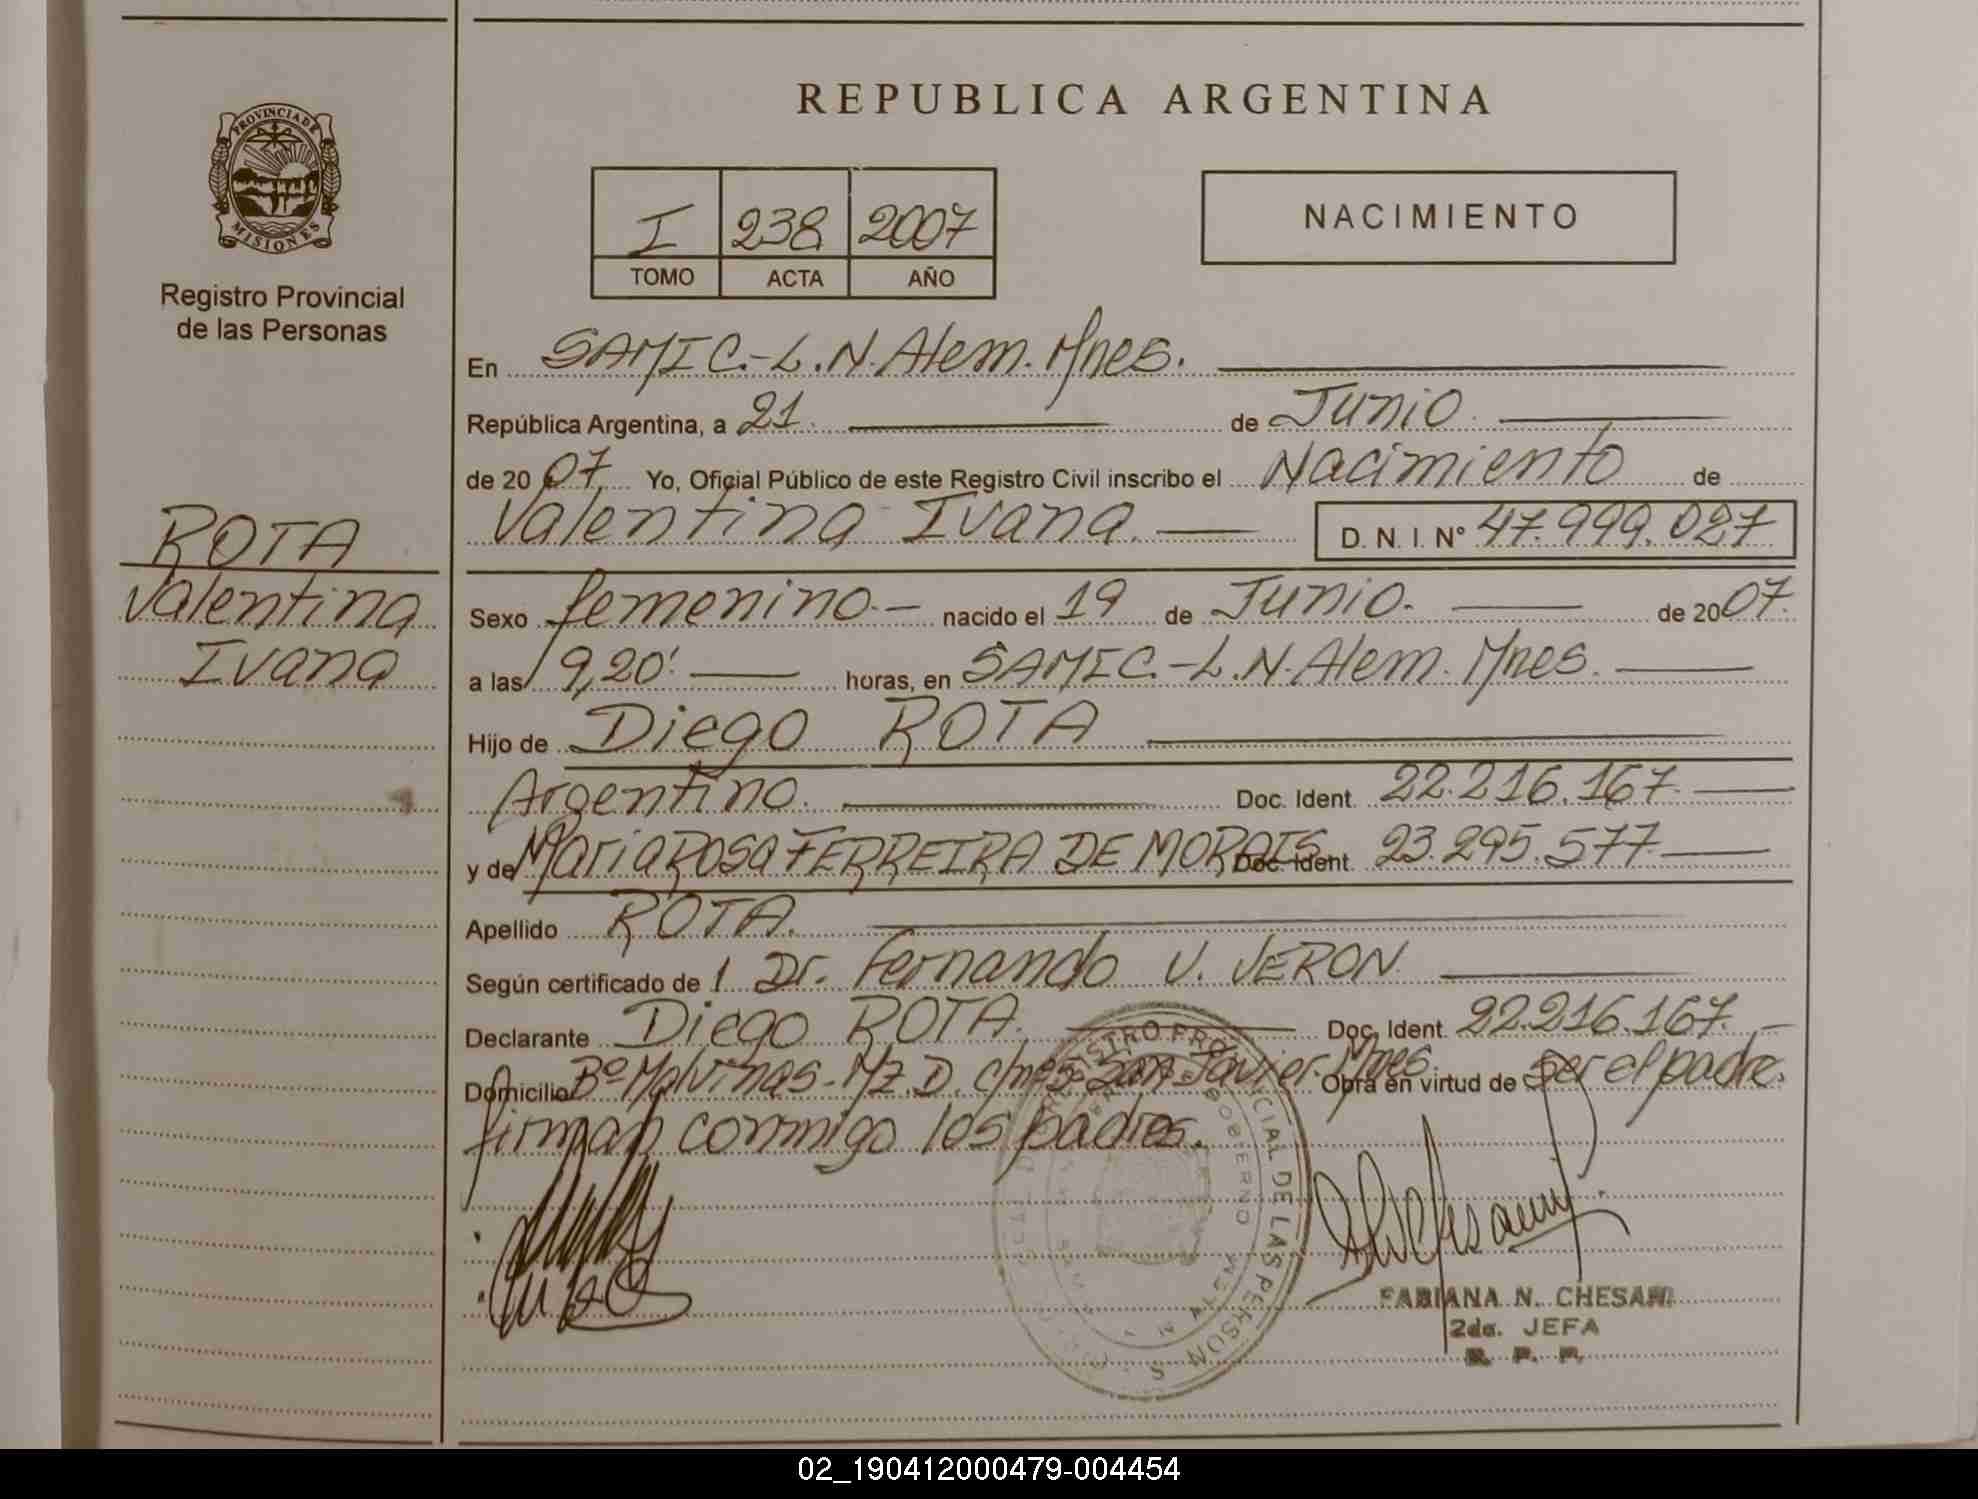 PROVINCIA DE
MISIONES
Registro Provincial
de las Personas
ROTA
Valentina
Ivana
REPUBLICA ARGENTINA
I 238 2007
TOMO ACTA AÑO
NACIMIENTO
En SAMIC.-L.N.Alem.Mnes.
República Argentina, a 21. de Junio.
de 20 07. Yo, Oficial Público de este Registro Civil inscribo el Nacimiento de
Valentina Ivana. D. N. I. N° 47.999.027
Sexo femenino.- nacido el 19 de Junio. de 20 07.
a las 9,20' horas, en SAMIC.-L.N.Alem. Mnes.
Hijo de Diego ROTA
Argentino. Doc. Ident. 22.216.167.
y de Maria ROSA FERREIRA DE MORAIS Doc. Ident. 23.295.577
Apellido ROTA.
Según certificado de Dr. Fernando V. VERON
Declarante Diego ROTA. Doc. Ident. 22.216.167.
Domicilio Bº Malvinas-Mz.D. San Javier.Mnes Obra en virtud de ser el padre.
firman conmigo los padres.
REGISTRO PROVINCIAL DE LAS PERSONAS
GOBIERNO
FABIANA N. CHESANI
2da. JEFA
R. P. P.
02_190412000479-004454